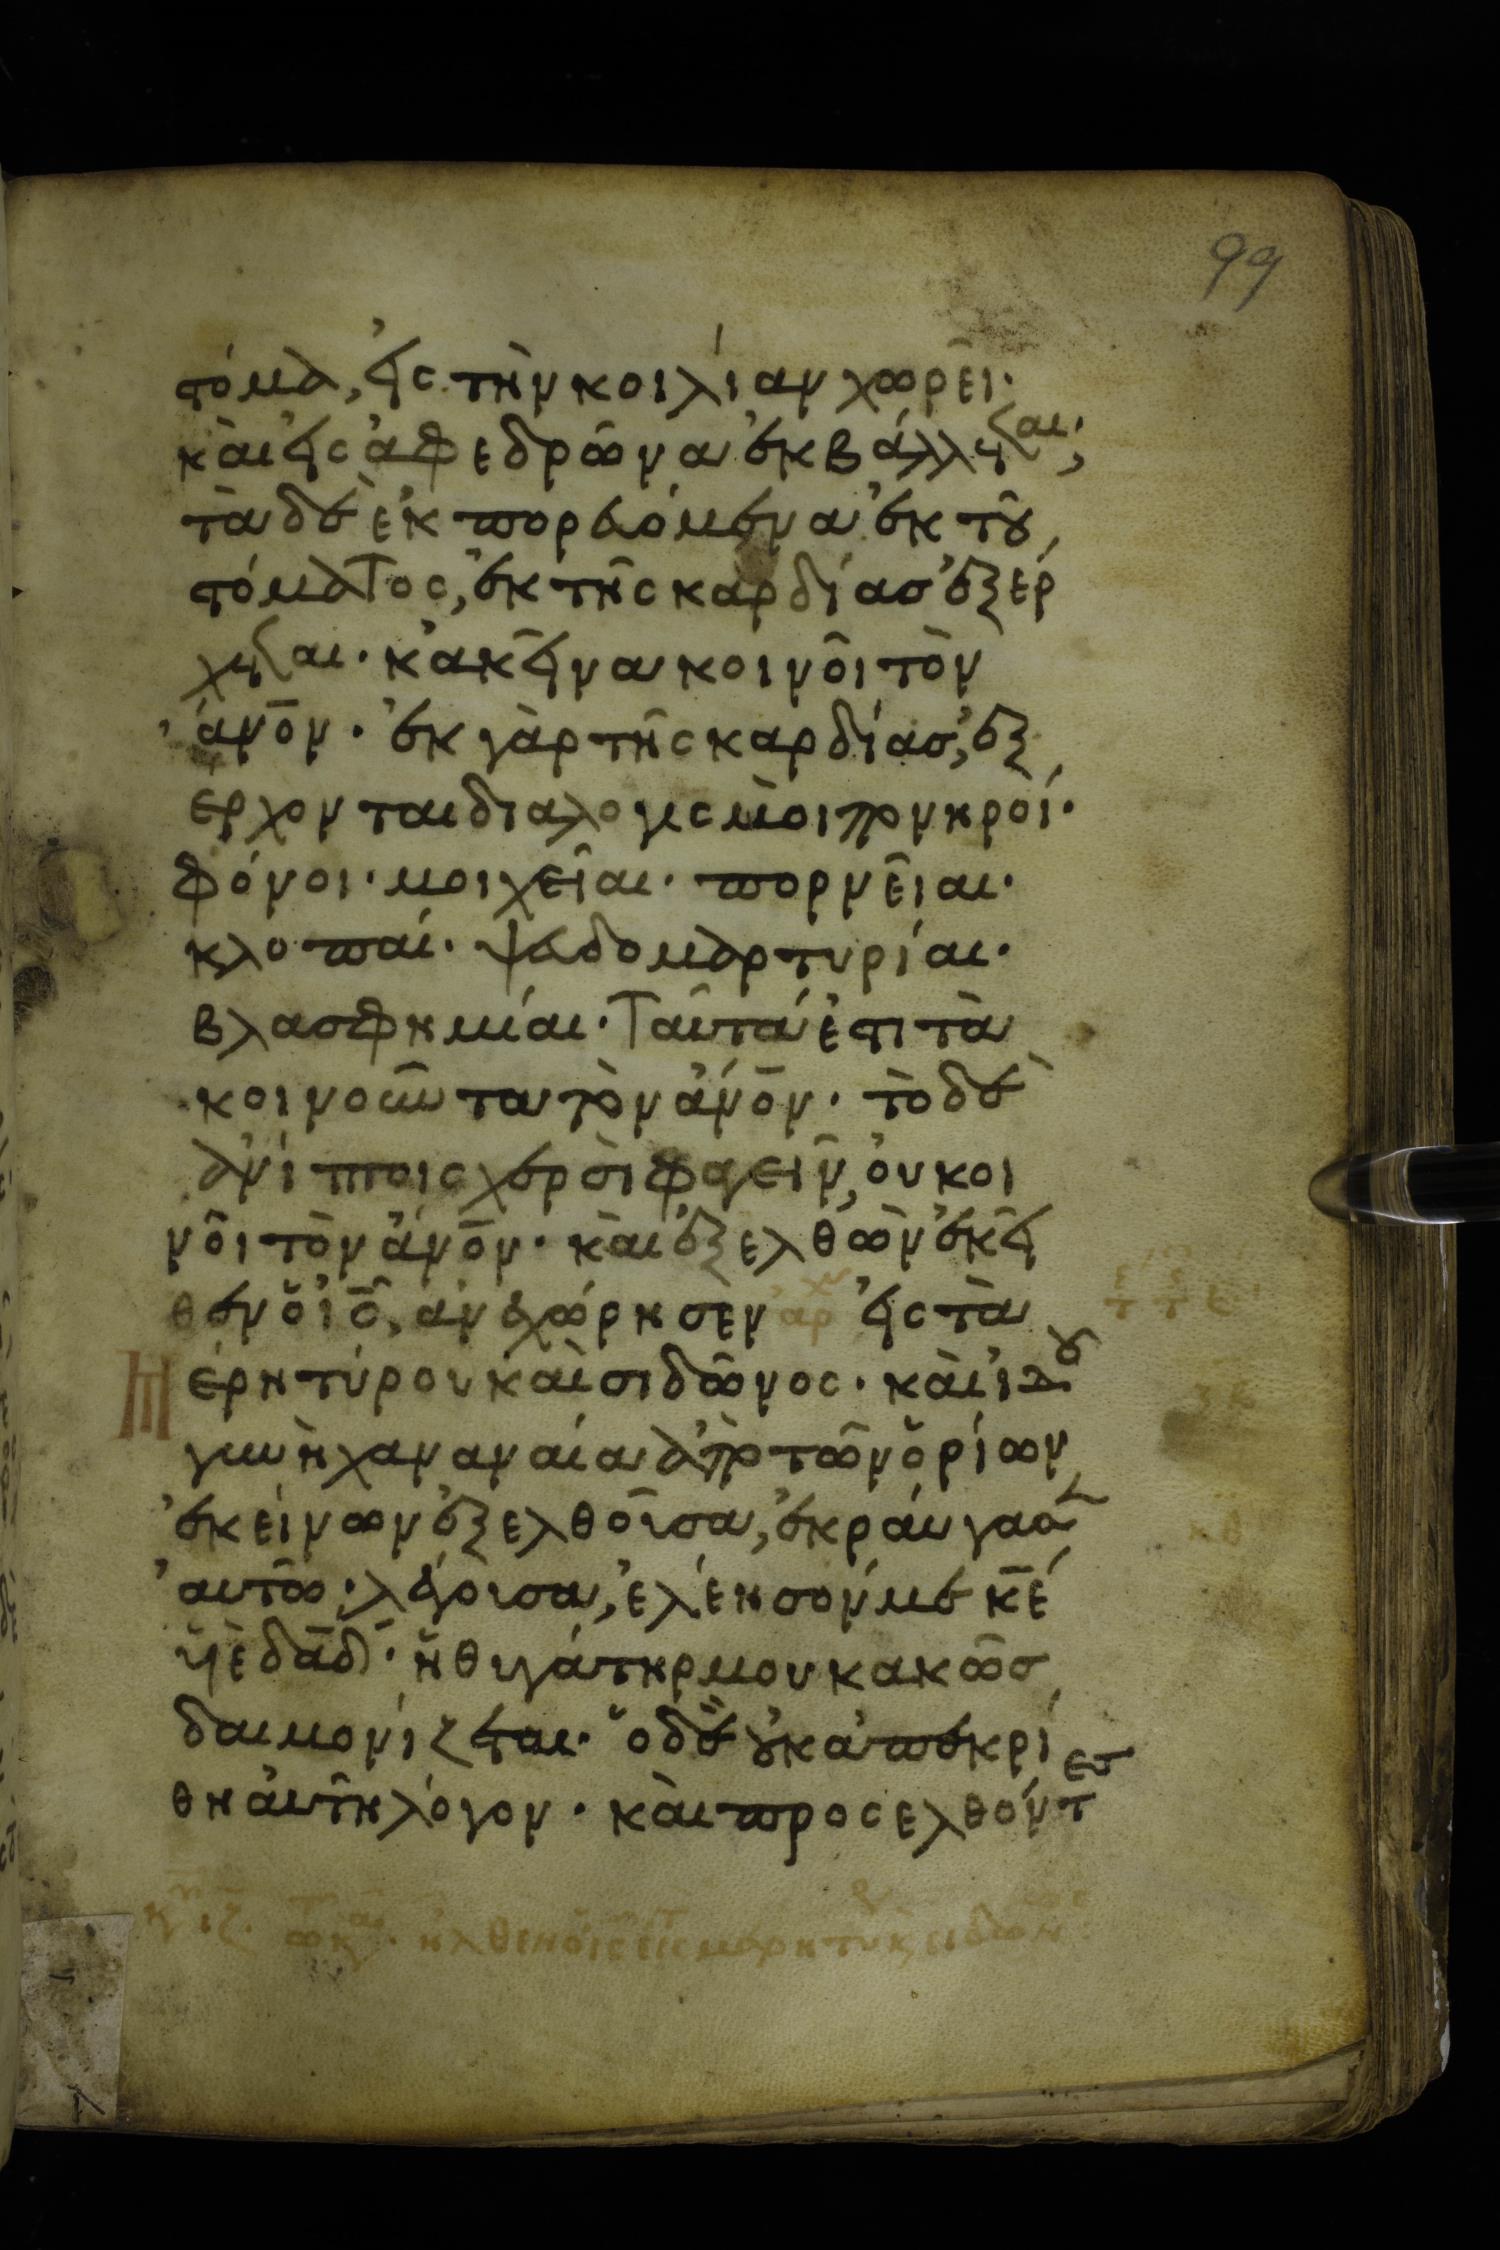 99
στόμα, εἰς τὴν κοιλίαν χωρεῖ·
καὶ εἰς ἀφεδρῶνα ἐκβάλλεται;
τὰ δὲ ἐκπορευόμενα ἐκ τοῦ
στόματος, ἐκ τῆς καρδίας ἐξέρ
χεται· κἀκεῖνα κοινοῖ τὸν
ἄνον· ἐκ γὰρ τῆς καρδίας, ἐξ
έρχονται διαλογισμοὶ πονηροί·
φόνοι· μοιχεῖαι· πορνεῖαι·
κλοπαί· ψευδομαρτυρίαι·
βλασφημίαι· Ταῦτά ἐστι τὰ
κοινοῦντα τὸν ἄνον· τὸ δὲ
ἀνίπτοις χερσὶ φαγεῖν, οὐ κοι
νοῖ τὸν ἄνον· καὶ ἐξελθὼν ἐκεῖ
θεν ὁ ις, ἀνεχώρησεν αρχ εἰς τὰ
μέρη τύρου καὶ σιδῶνος· καὶ ἰδοὺ
γυνὴ χαναναία ἀπὸ τῶν ὁρίων
ἐκείνων ἐξελθοῦσα, ἐκραύγασεν
αὐτῶ· λέγουσα, ἐλέησόν με κε
υἱὲ δαδ· ἡ θυγάτηρ μου κακῶς
δαιμονίζεται· ὁ δὲ οὐκ ἀπεκρί
θη αὐτῆ λόγον· καὶ προσελθόντες